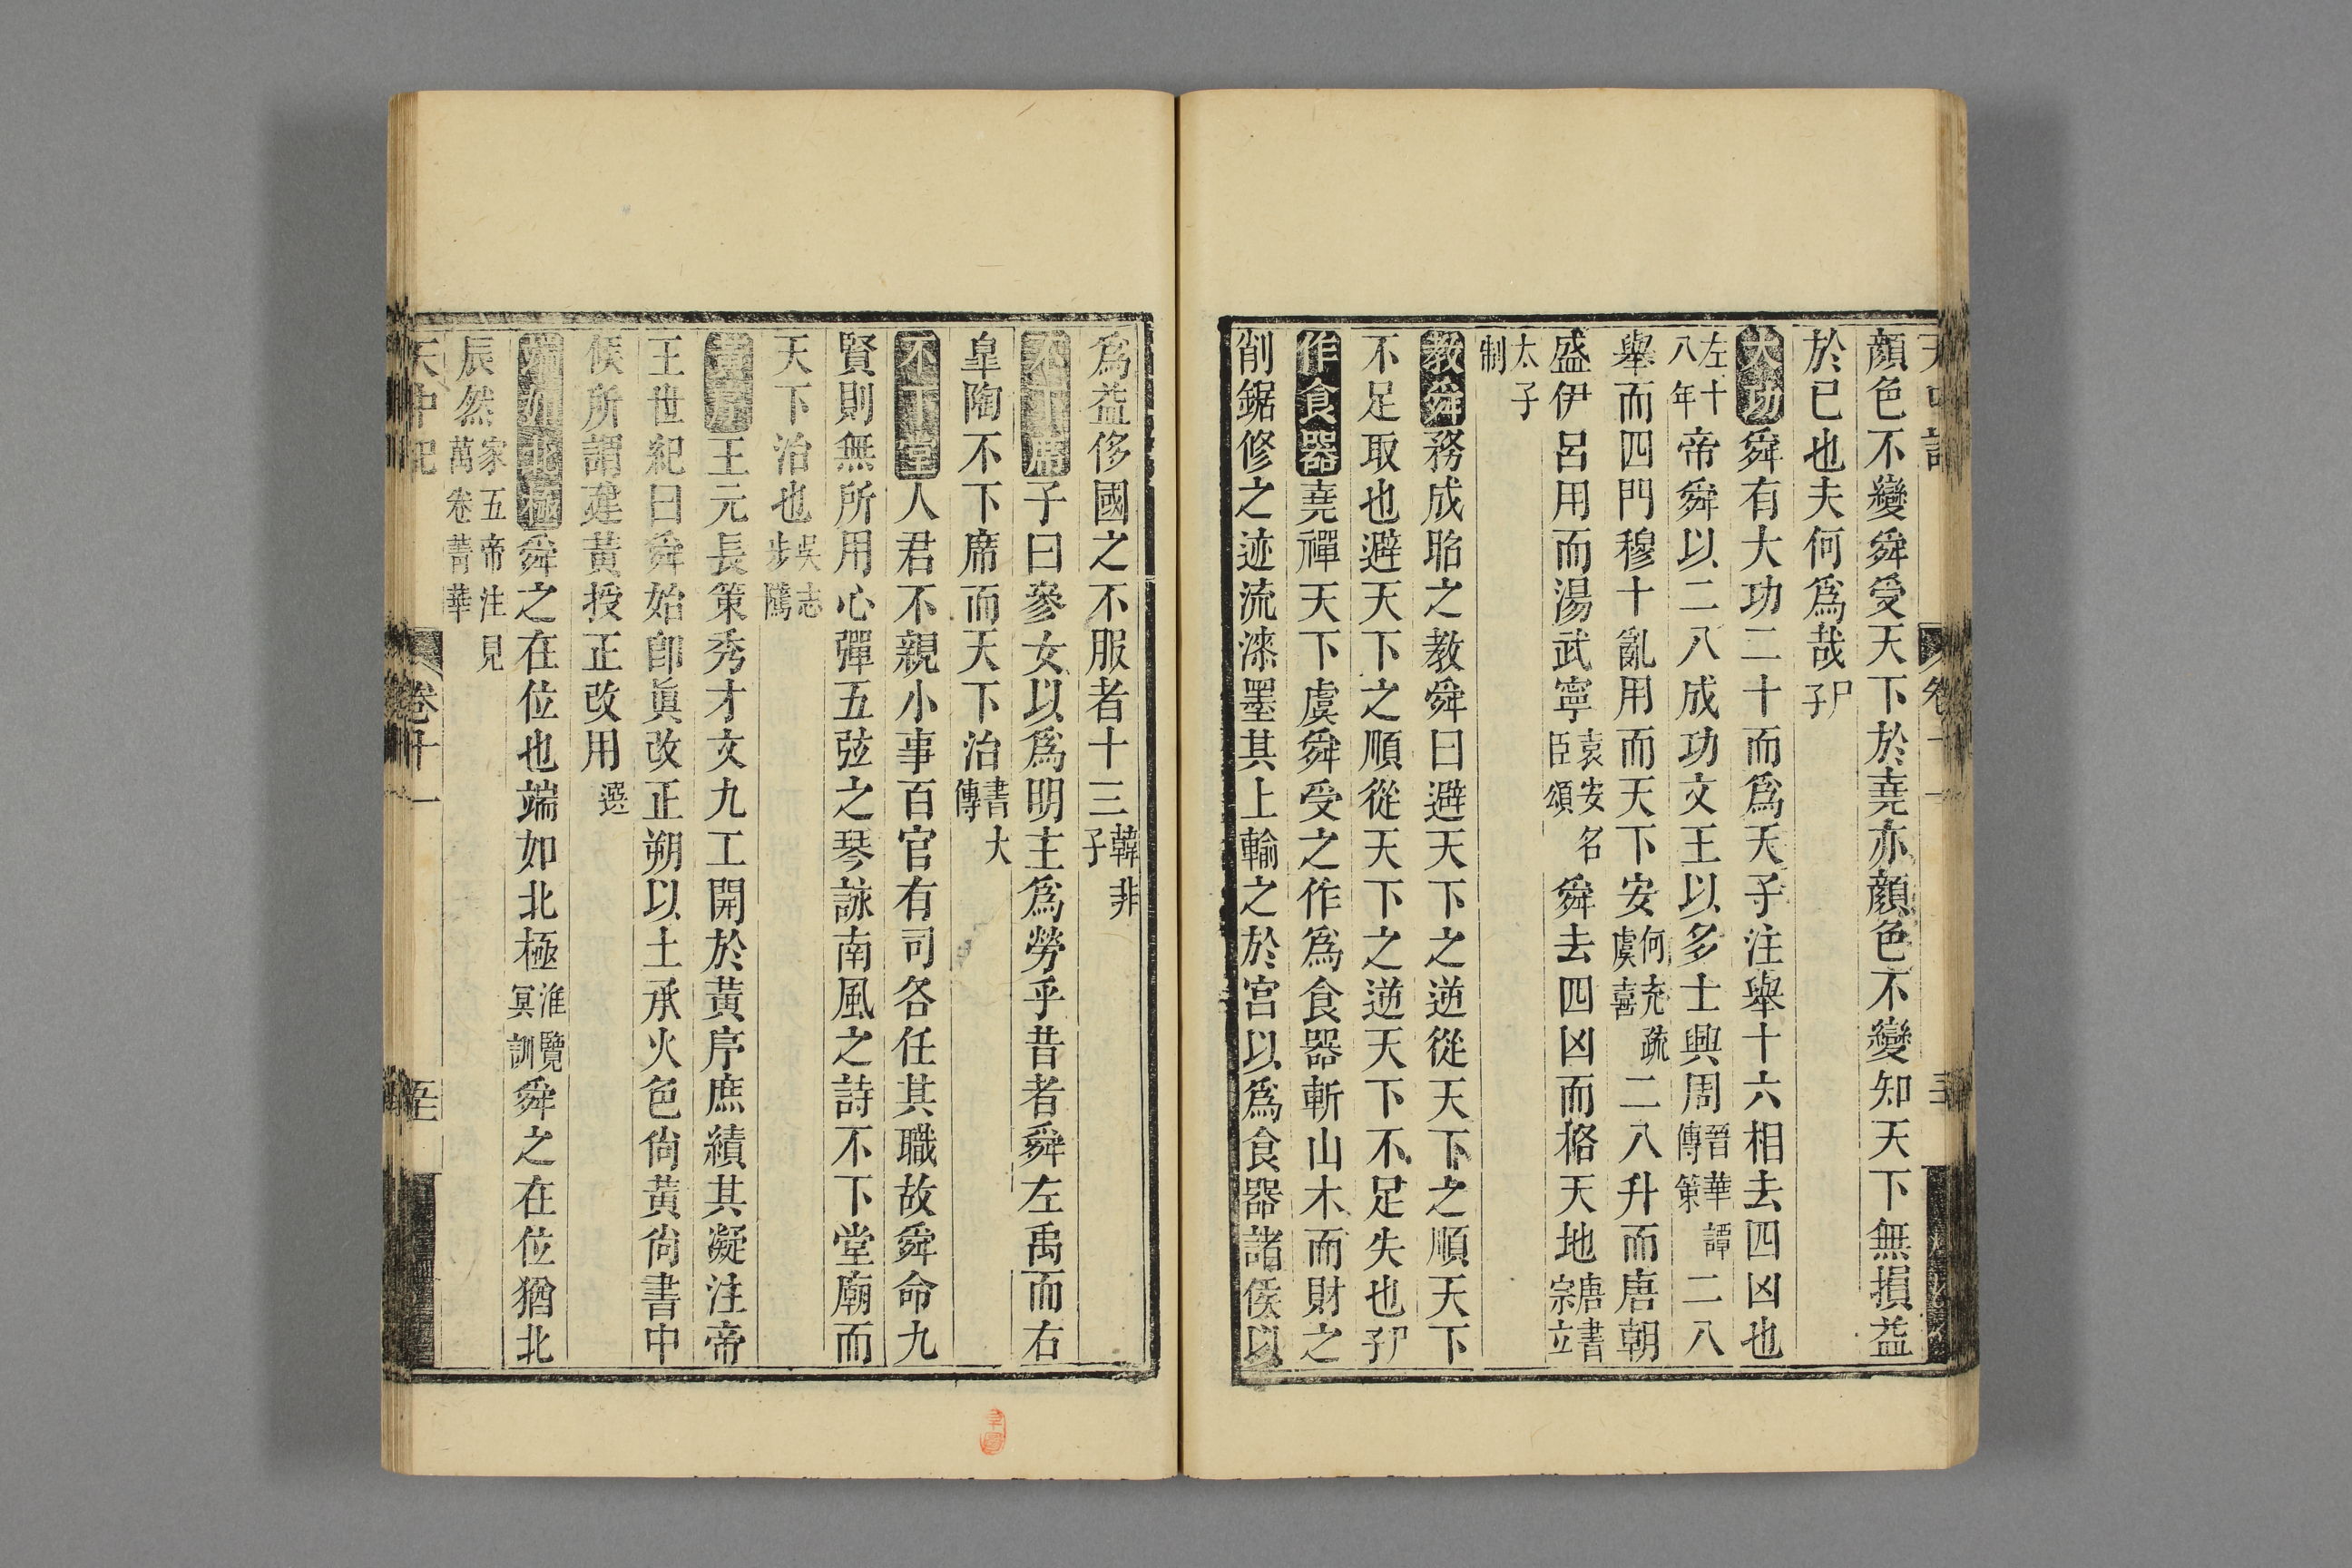 顔色不變舜受天下於堯亦顔色不變知天下無損益
於已也夫何爲哉尸子
大功舜有大功二十而爲天子注舉十六相去四凶也
左十八年帝舜以二八成功文王以多士興周晉華譚傳策二八
舉而四門穆十亂用而天下安何充疏虞喜二八升而唐朝
盛伊呂用而湯武寧袁安名臣頌舜去四凶而格天地唐書宗立
太子制
教舜務成昭之教舜曰避天下之逆從天下之順天下
不足取也避天下之順從天下之逆天下不足失也尸子
作食器堯禪天下虞舜受之作爲食器斬山木而財之
削鋸修之迹流漆墨其上輸之於宮以爲食器諸侯以
爲益侈國之不服者十三韓非子
不下席子曰參女以爲明主爲勞乎昔者舜左禹而右
皐陶不下席而天下治書大傳
不下堂人君不親小事百官有司各任其職故舜命九
賢則無所用心彈五弦之琴詠南風之詩不下堂廟而
天下治也吳志步隲
黃序王元長策秀才文九工開於黃序庶績其凝注帝
王世紀曰舜始卽眞改正朔以土承火色尙黃尙書中
候所謂建黃授正改用選
端如北極舜之在位也端如北極淮覽冥訓舜之在位猶北
辰然家五帝注見萬卷菁華
天中記 卷十一 五